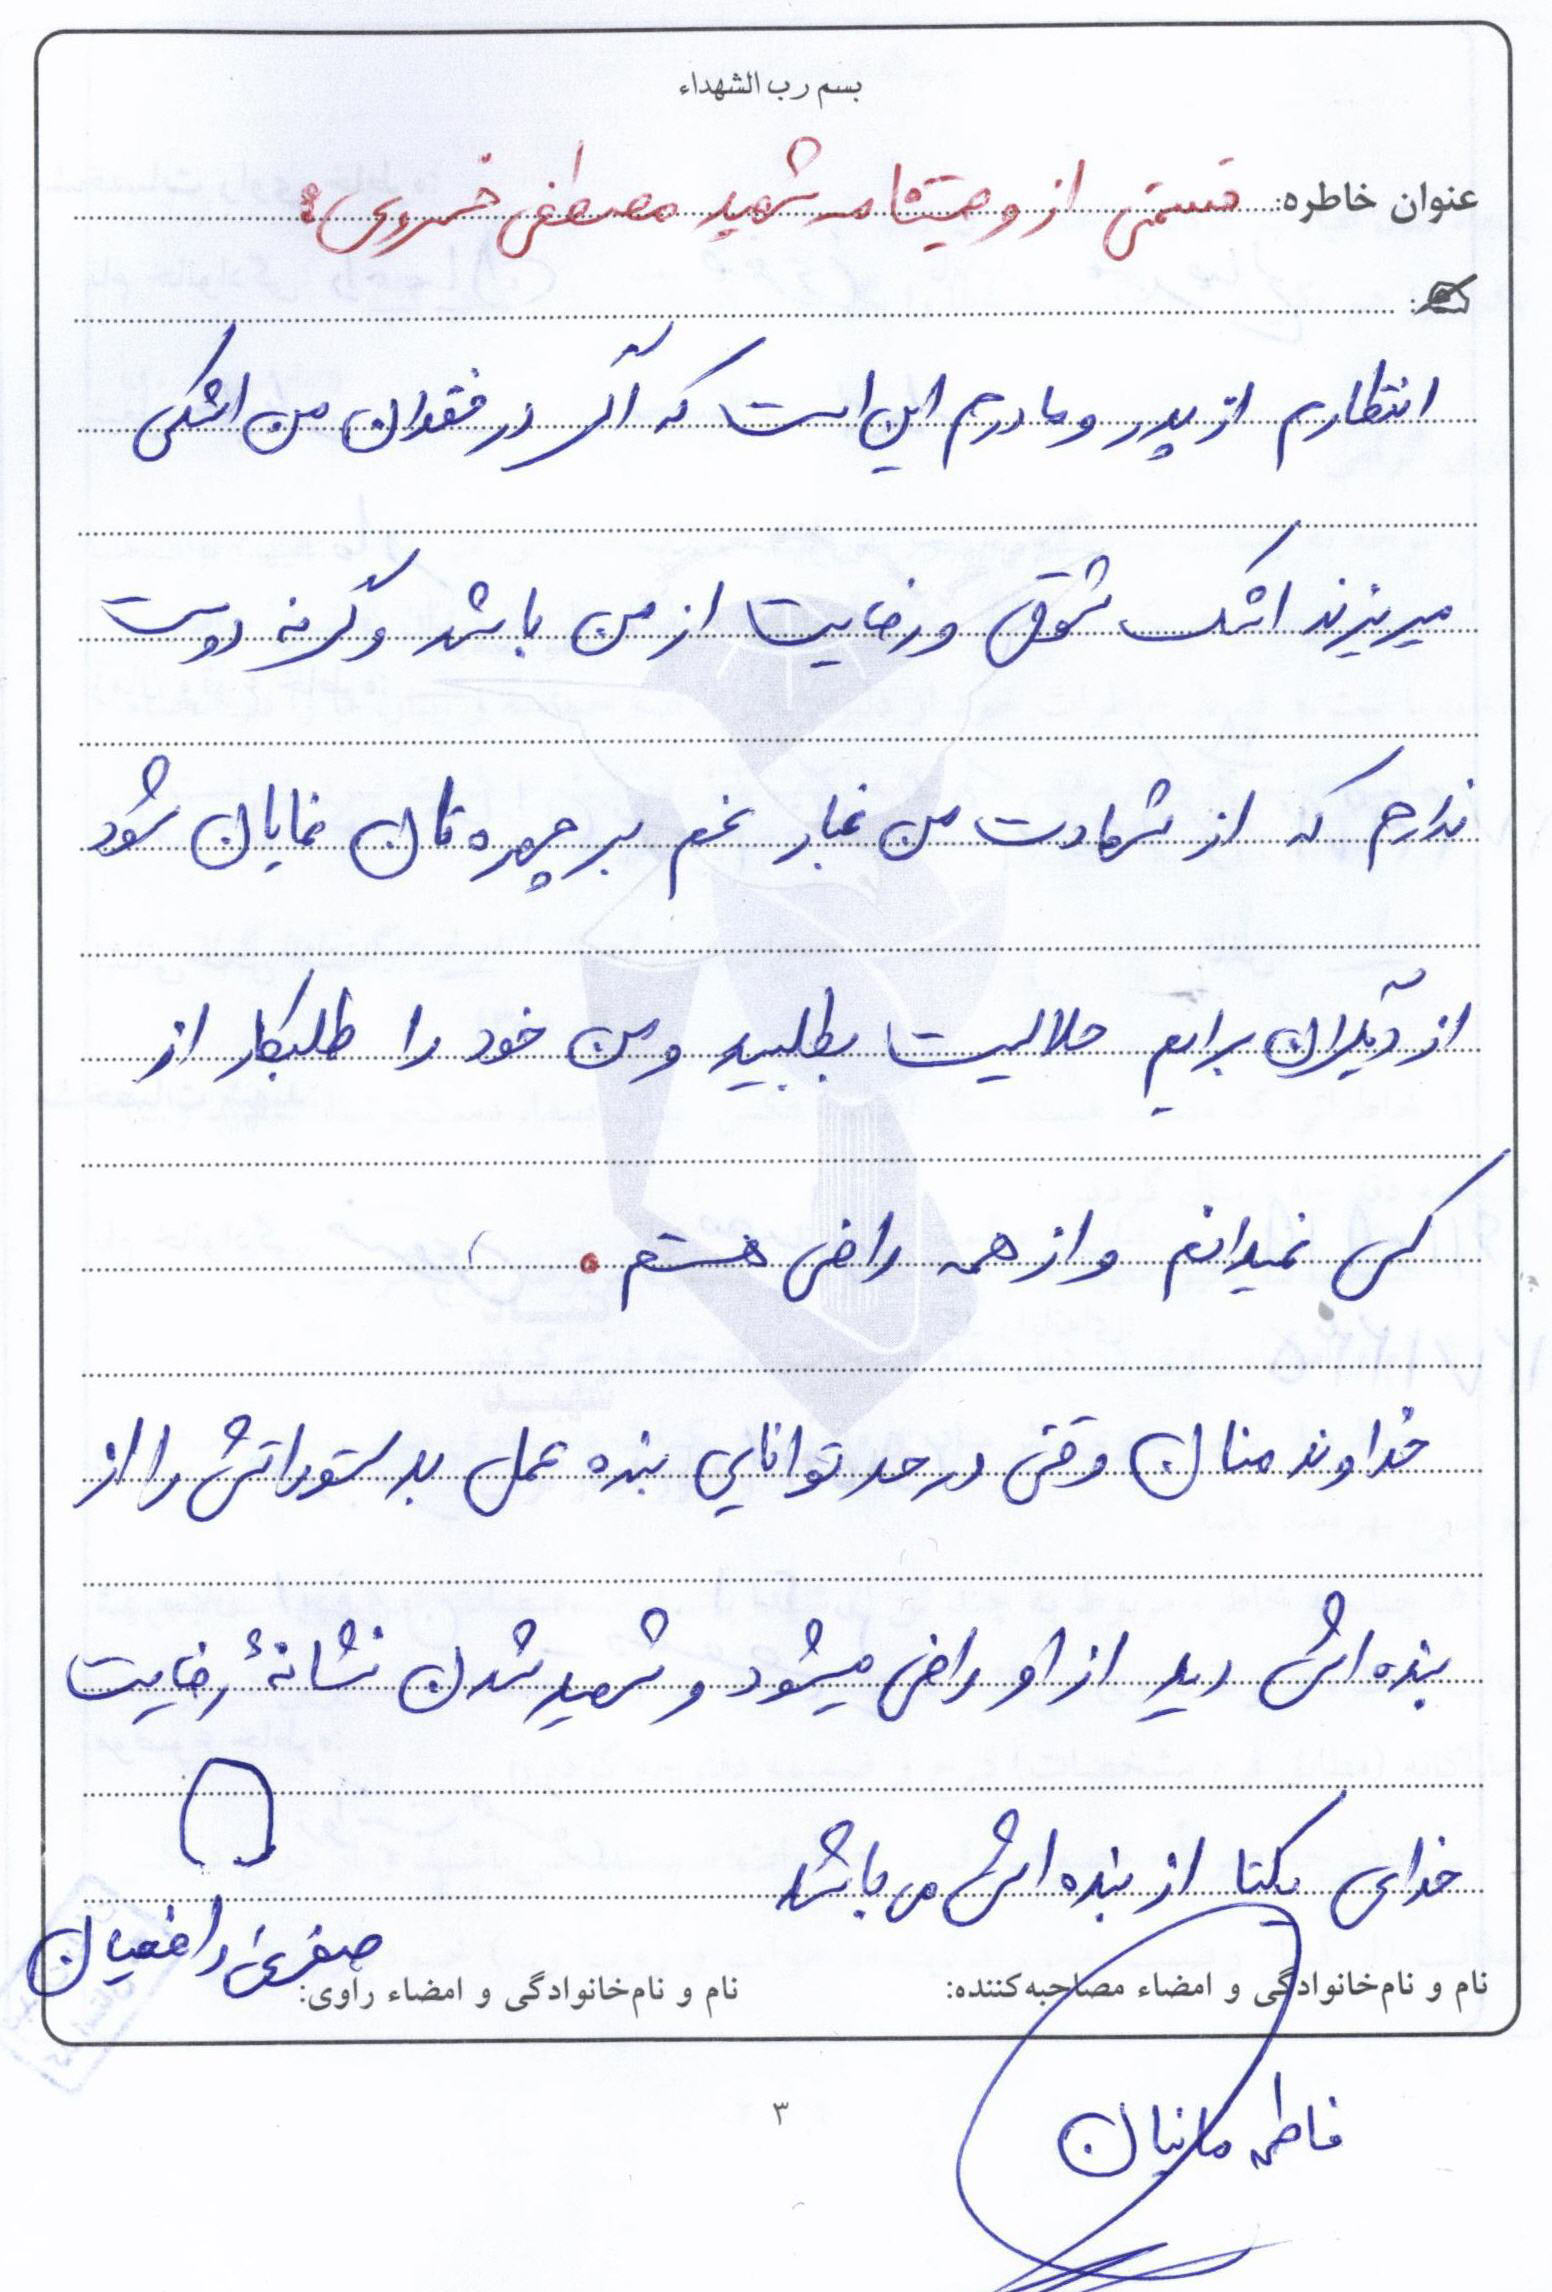 بسم رب الشهداء
عنوان خاطره: قسمتی از وصیتنامه شهید مصطفی خسروی:
انتظارم از پدر و مادرم این است که اگر در فقدان من اشکی
میریزند اشک شوق و رضایت از من باشد وگرنه دوست
ندارم که از شهادت من غبار غم بر چهره تان نمایان شود
از دیگران برایم حلالیت بطلبید و من خود را طلبکار از
کسی نمیدانم و از همه راضی هستم.
خداوند منان وقتی در حد توانایی بنده عمل بدستوراتش را از
بنده اش دید از او راضی میشود و شهید شدن نشانهٔ رضایت
خدای یکتا از بنده اش می باشد
نام و نام‌خانوادگی و امضاء مصاحبه‌کننده:
نام و نام‌خانوادگی و امضاء راوی:
صغری رافعیان
فاطمه مانیان
۳